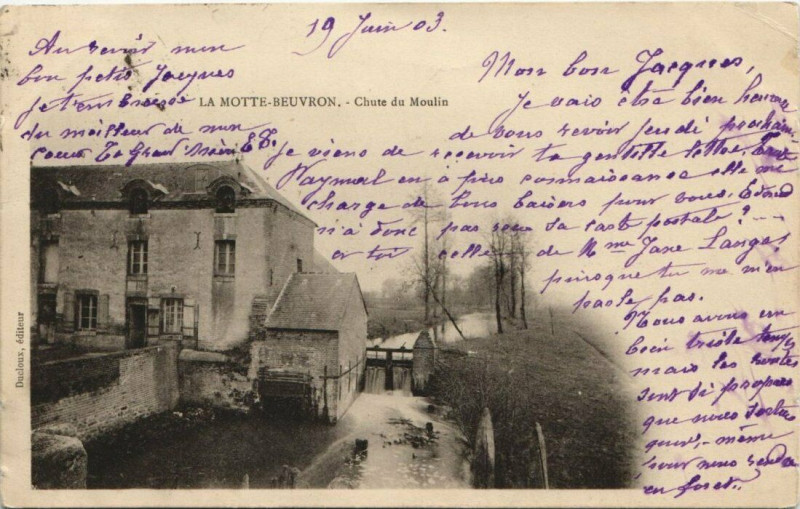 19 Juin 03.
Mon bon Jacques,
Je vais être bien heureux
de vous revoir jeudi prochain,
je viens de recevoir ta gentille lettre,
Raymond en a pris connaissance elle me
charge de tous baisers pour vous. Edouard
n'a donc pas reçu sa carte postale?
et toi celle de Mme Jane
puisque tu ne m'en
parle pas.
Nous avons un
bien triste temps
mais les routes
sont si propres
que nous sortons
quand-même
pour nous rendre
en foret.
Au revoir mon
bon petit Jacques
je t'embrasse
du meilleur de mon
coeur Ta Grand'Mère
LA MOTTE-BEUVRON. - Chute du Moulin
Ducloux, éditeur